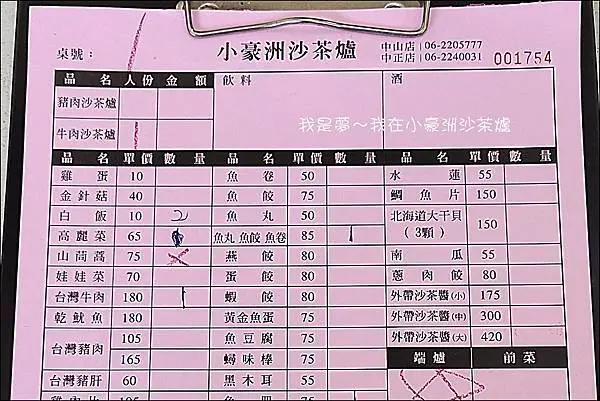 桌號： 小豪洲沙茶爐 中山店 | 06-2205777
中正店 | 06-2240031 001754
品名 人份 金額 飲料 酒
豬肉沙茶爐
牛肉沙茶爐
我是夢～我在小豪洲沙茶爐
品名 單價 數量 品名 單價 數量 品名 單價 數量
雞蛋 10 魚卷 50 水蓮 55
金針菇 40 魚餃 75 鯛魚片 150
白飯 10 2 魚丸 50 北海道大干貝 (3顆) 150
高麗菜 65 魚丸 魚餃 魚卷 85
山茼蒿 75 燕餃 80 南瓜 55
娃娃菜 70 蛋餃 80 蔥肉餃 80
台灣牛肉 180 蝦餃 80 外帶沙茶醬(小) 175
乾魷魚 180 黃金魚蛋 75 外帶沙茶醬(中) 300
台灣豬肉 105 魚豆腐 75 外帶沙茶醬(大) 420
165 蟳味棒 75 端爐 前菜
台灣豬肝 60 黑木耳 55